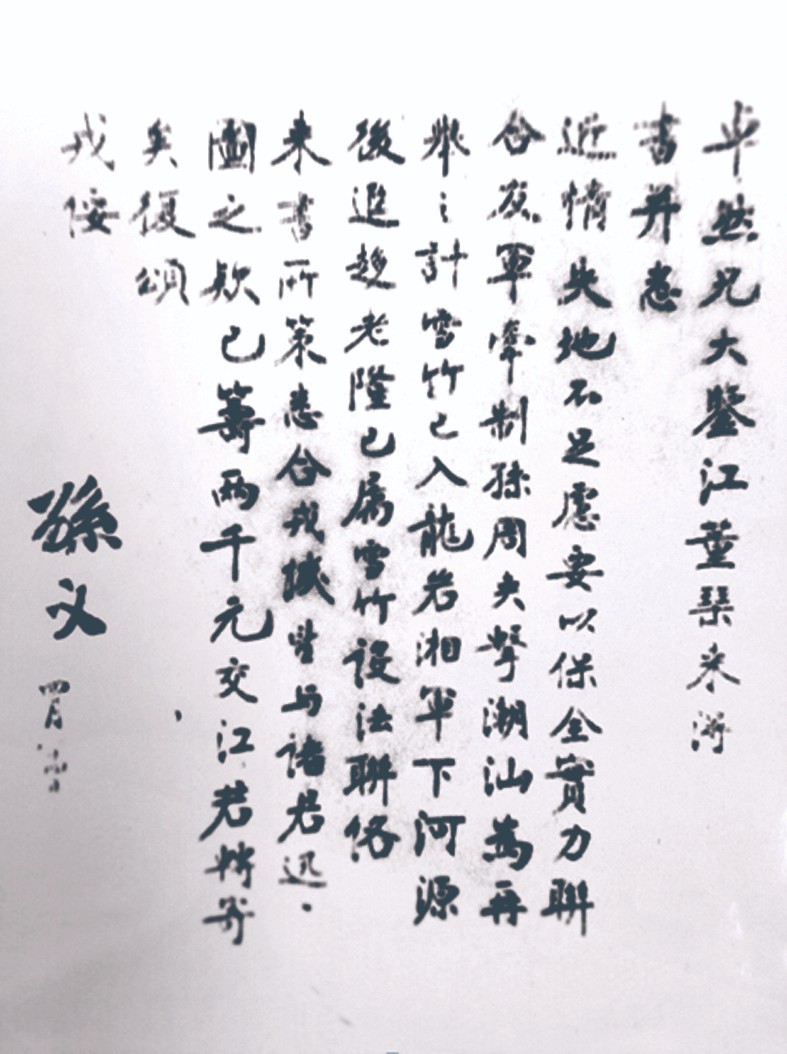 卓然兄大鑒江董琹來得
書并悉
近情失地不足慮要以保全實力聯
合友軍牽制孫周夾擊潮汕為再
舉之計雪竹已入龍岩湘軍下河源
後進趍老隆已屬雪竹設法聯絡
來書所策悉合戎機望与諸君迅
圖之欵已籌兩千元交江君轉寄
矣復頌
戎佞
孫文
四月